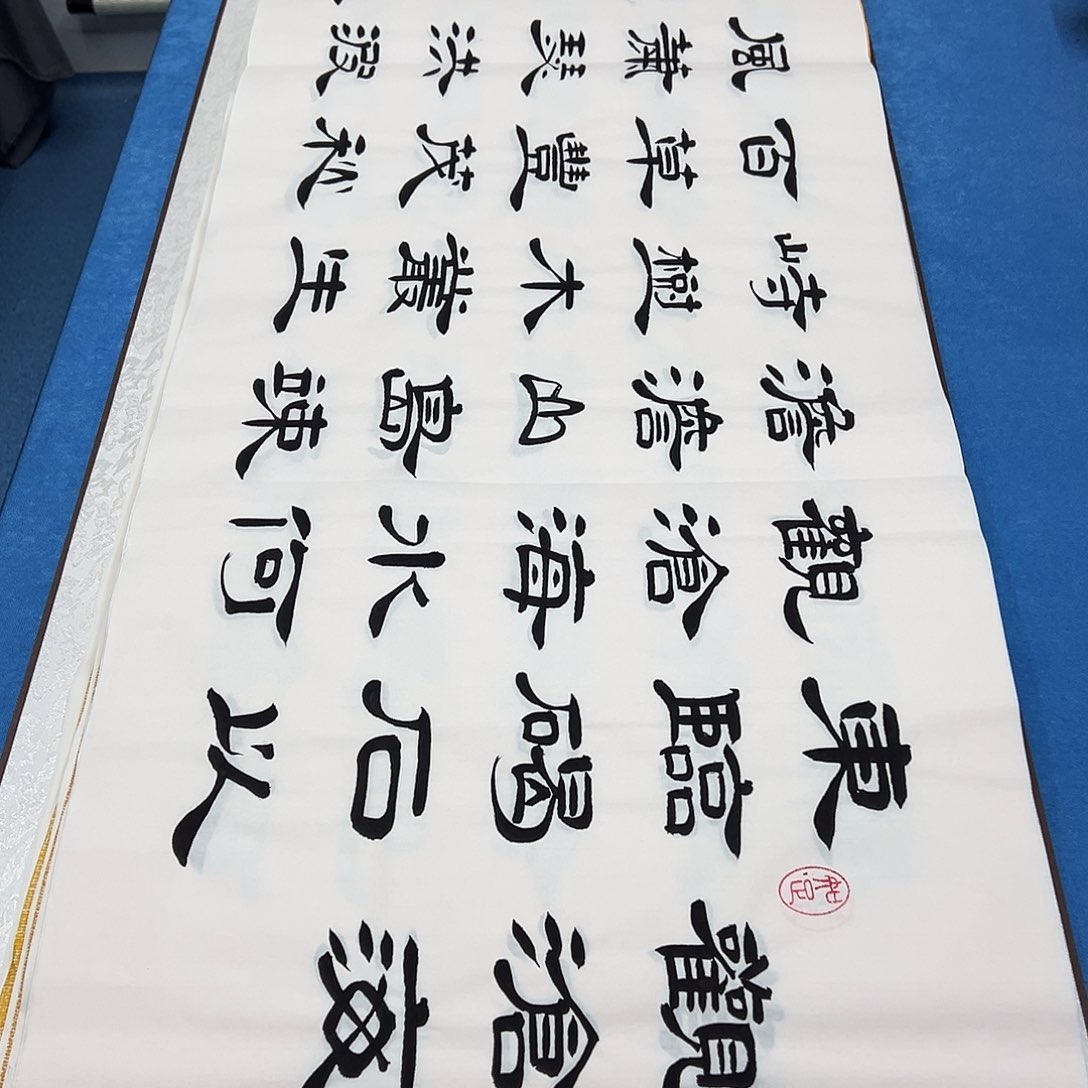 觀滄海
東臨碣石以
觀滄海水何
澹澹山島竦
峙樹木叢生
百草豐茂秋
風蕭瑟洪波